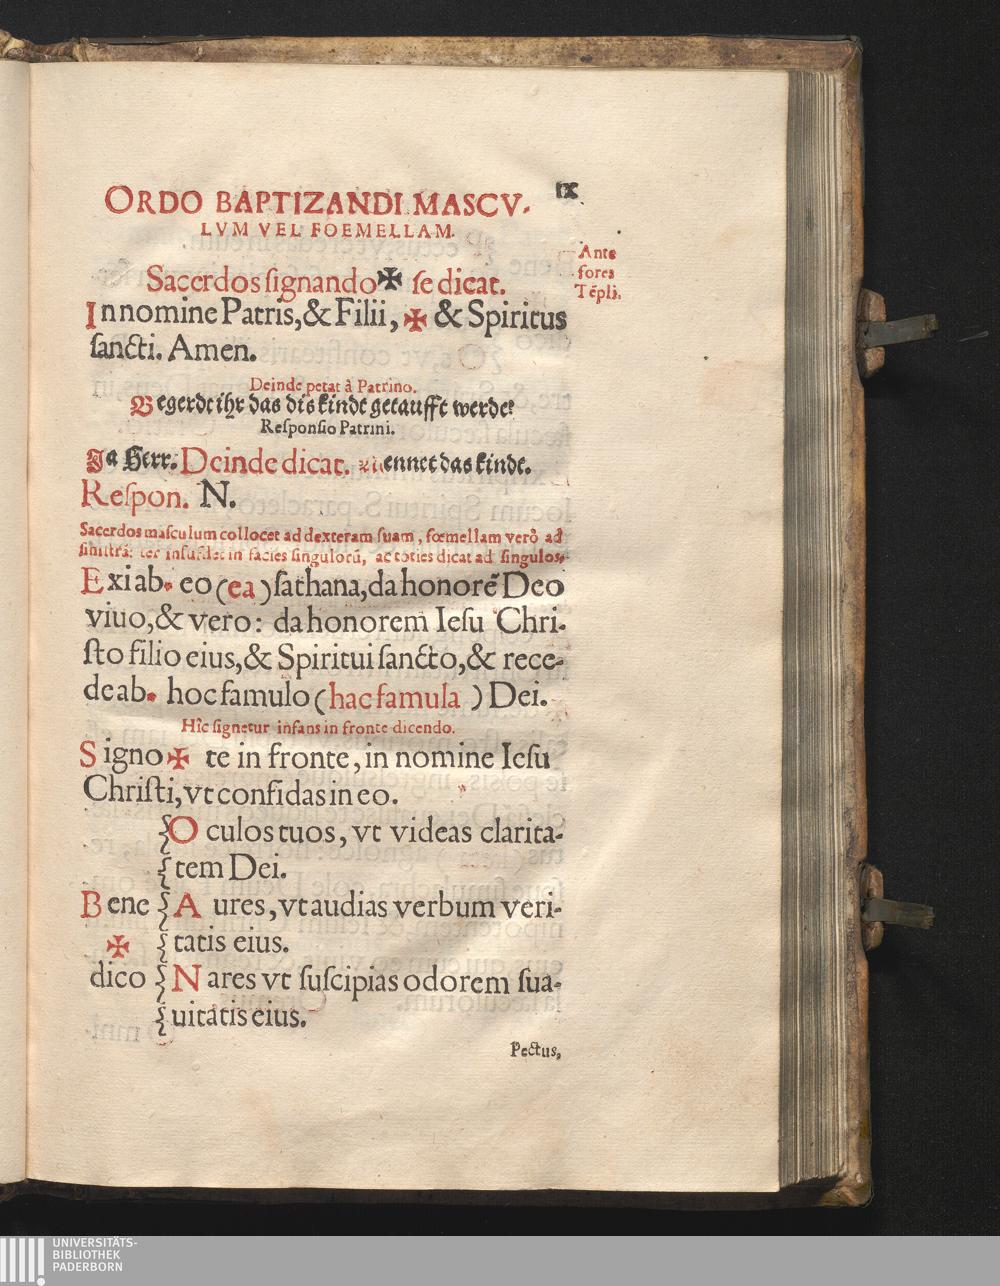 IX
ORDO BAPTIZANDI MASCV-
LVM VEL FOEMELLAM.
Ante
fores
Tẽpli.
Sacerdos ſignando ✠ ſe dicat.
In nomine Patris, & Filii, ✠ & Spiritus
ſancti. Amen.
Deinde petat à Patrino.
Begerdt ihr das dis kindt getaufft werde?
Reſponſio Patrini.
Ja Herr. Deinde dicat. Nennet das kindt.
Reſpon. N.
Sacerdos maſculum collocet ad dexteram ſuam, fœmellam verò ad
ſiniſtrã: ter inſufflet in facies ſingulorũ, ac toties dicat ad ſingulos.
Exi ab * eo (ea) ſathana, da honorẽ Deo
viuo, & vero: da honorem Ieſu Chri-
ſto filio eius, & Spiritui ſancto, & rece-
de ab * hoc famulo (hac famula) Dei.
Hîc ſignetur infans in fronte dicendo.
Signo ✠ te in fronte, in nomine Ieſu
Chriſti, vt confidas in eo.
Oculos tuos, vt videas clarita-
tem Dei.
Bene Aures, vt audias verbum veri-
✠ tatis eius.
dico Nares vt ſuſcipias odorem ſua-
uitatis eius.
Pectus,
UNIVERSITÄTS-
BIBLIOTHEK
PADERBORN